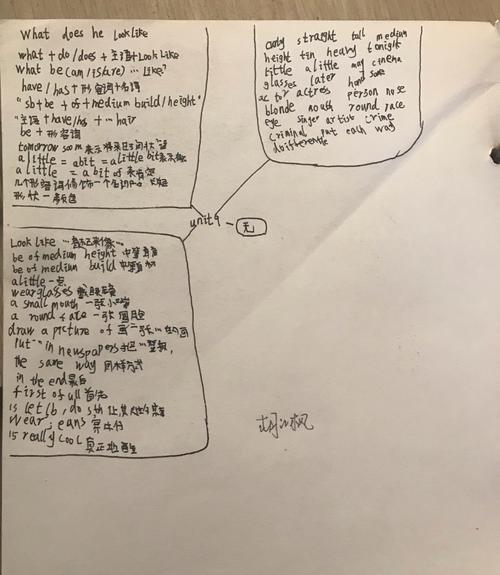 What does he look like
what + do/does + 主语 + Look Like
What be (am/is/are) ... like?
have/has + 形容词 + 名词
"sb + be + of + medium build/height"
"主语 + have/has + ... hair
be + 形容词
tomorrow soon 表示将来
a little = a bit = a little bit 表示
a little = a bit of 
一个名词
形状 — 颜色
curly straight tall medium
height thin heavy tonight
little a little may cinema
glasses later handsome
actor actress person nose
blonde mouth round face
eye singer artist crime
criminal put each way
differentle
unit 9
无
Look Like ... 看起来像...
be of medium height 中等身高
be of medium build 中等身材
a little 一点
wear glasses 戴眼镜
a small mouth 一张小嘴
a round face 一张圆脸
draw a picture of 画一张...的画
Put ... in newspapers 把...登报,
the same way 同样方式
in the end 最后
first of all 首先
is let sb, do sth 让某人做某事
wear jeans 穿牛仔
is really cool 真正